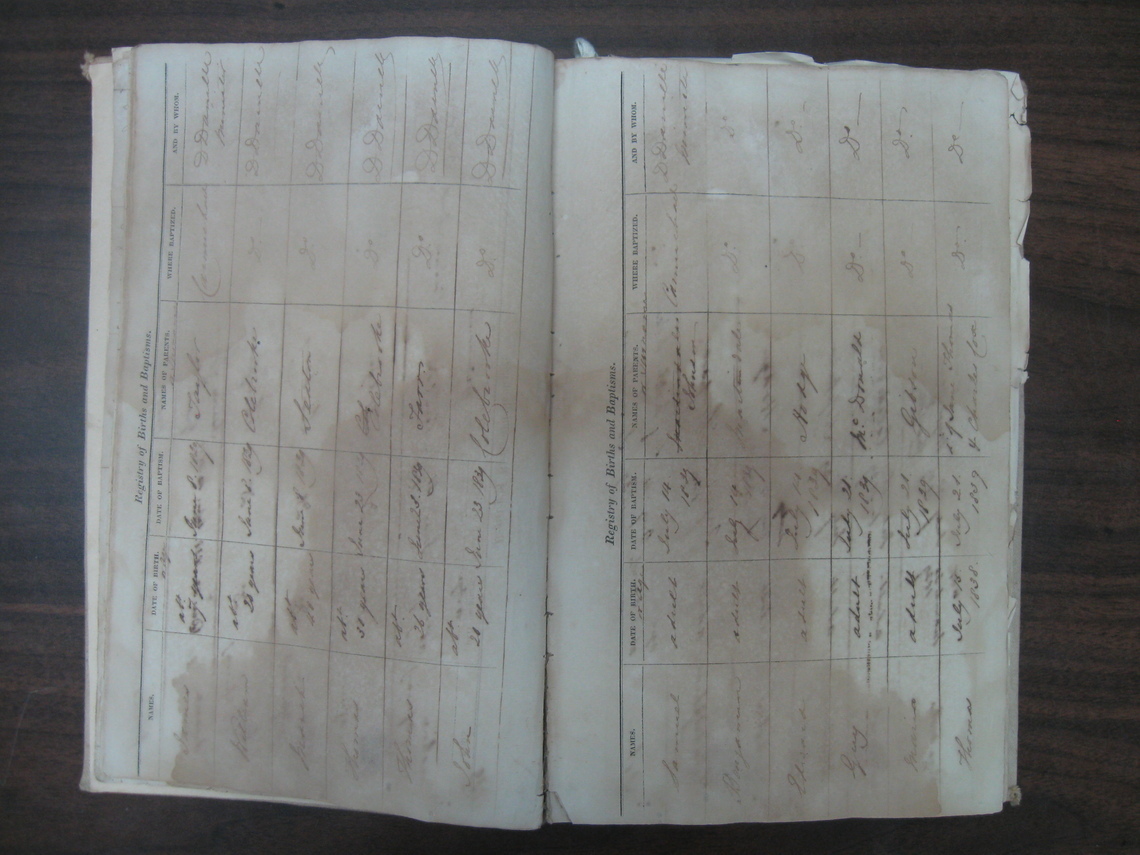 Registry of Births and Baptisms.
NAMES. DATE OF BIRTH. DATE OF BAPTISM. NAMES OF PARENTS. WHERE BAPTIZED. AND BY WHOM.
or age
James abt years June 8. 1839 Taylor Carmichael D Daniell
Minister
William abt
20 years June 8. 1839 Colebrooke Do D Daniell
abt
years June 1839 Sexton Do D Daniell
Thomas abt
30 years June 23 1839 Colebrooke Do D Daniell
Thomas abt
26 years June 23. 1839 Farr Do D Daniell
John abt
20 years June 23 1839 Colebrooke Do D Daniell
Registry of Births and Baptisms.
NAMES. DATE OF BIRTH. DATE OF BAPTISM. NAMES OF PARENTS. WHERE BAPTIZED. AND BY WHOM.
or age
Samuel adult July 14. 1839 Johnson Carmichael D Daniell
Minister
Benjamin adult July 14 1839 Martindale Do Do
Edward adult July 14 1839 Hodge Do Do
Guy adult July 21. 1839 Mc Donald Do Do
Maria adult July 21. 1839 Gibson Do Do
Thomas July 15 1838. July 21. 1839 of Jane Thomas
& Charles Cox Do Do